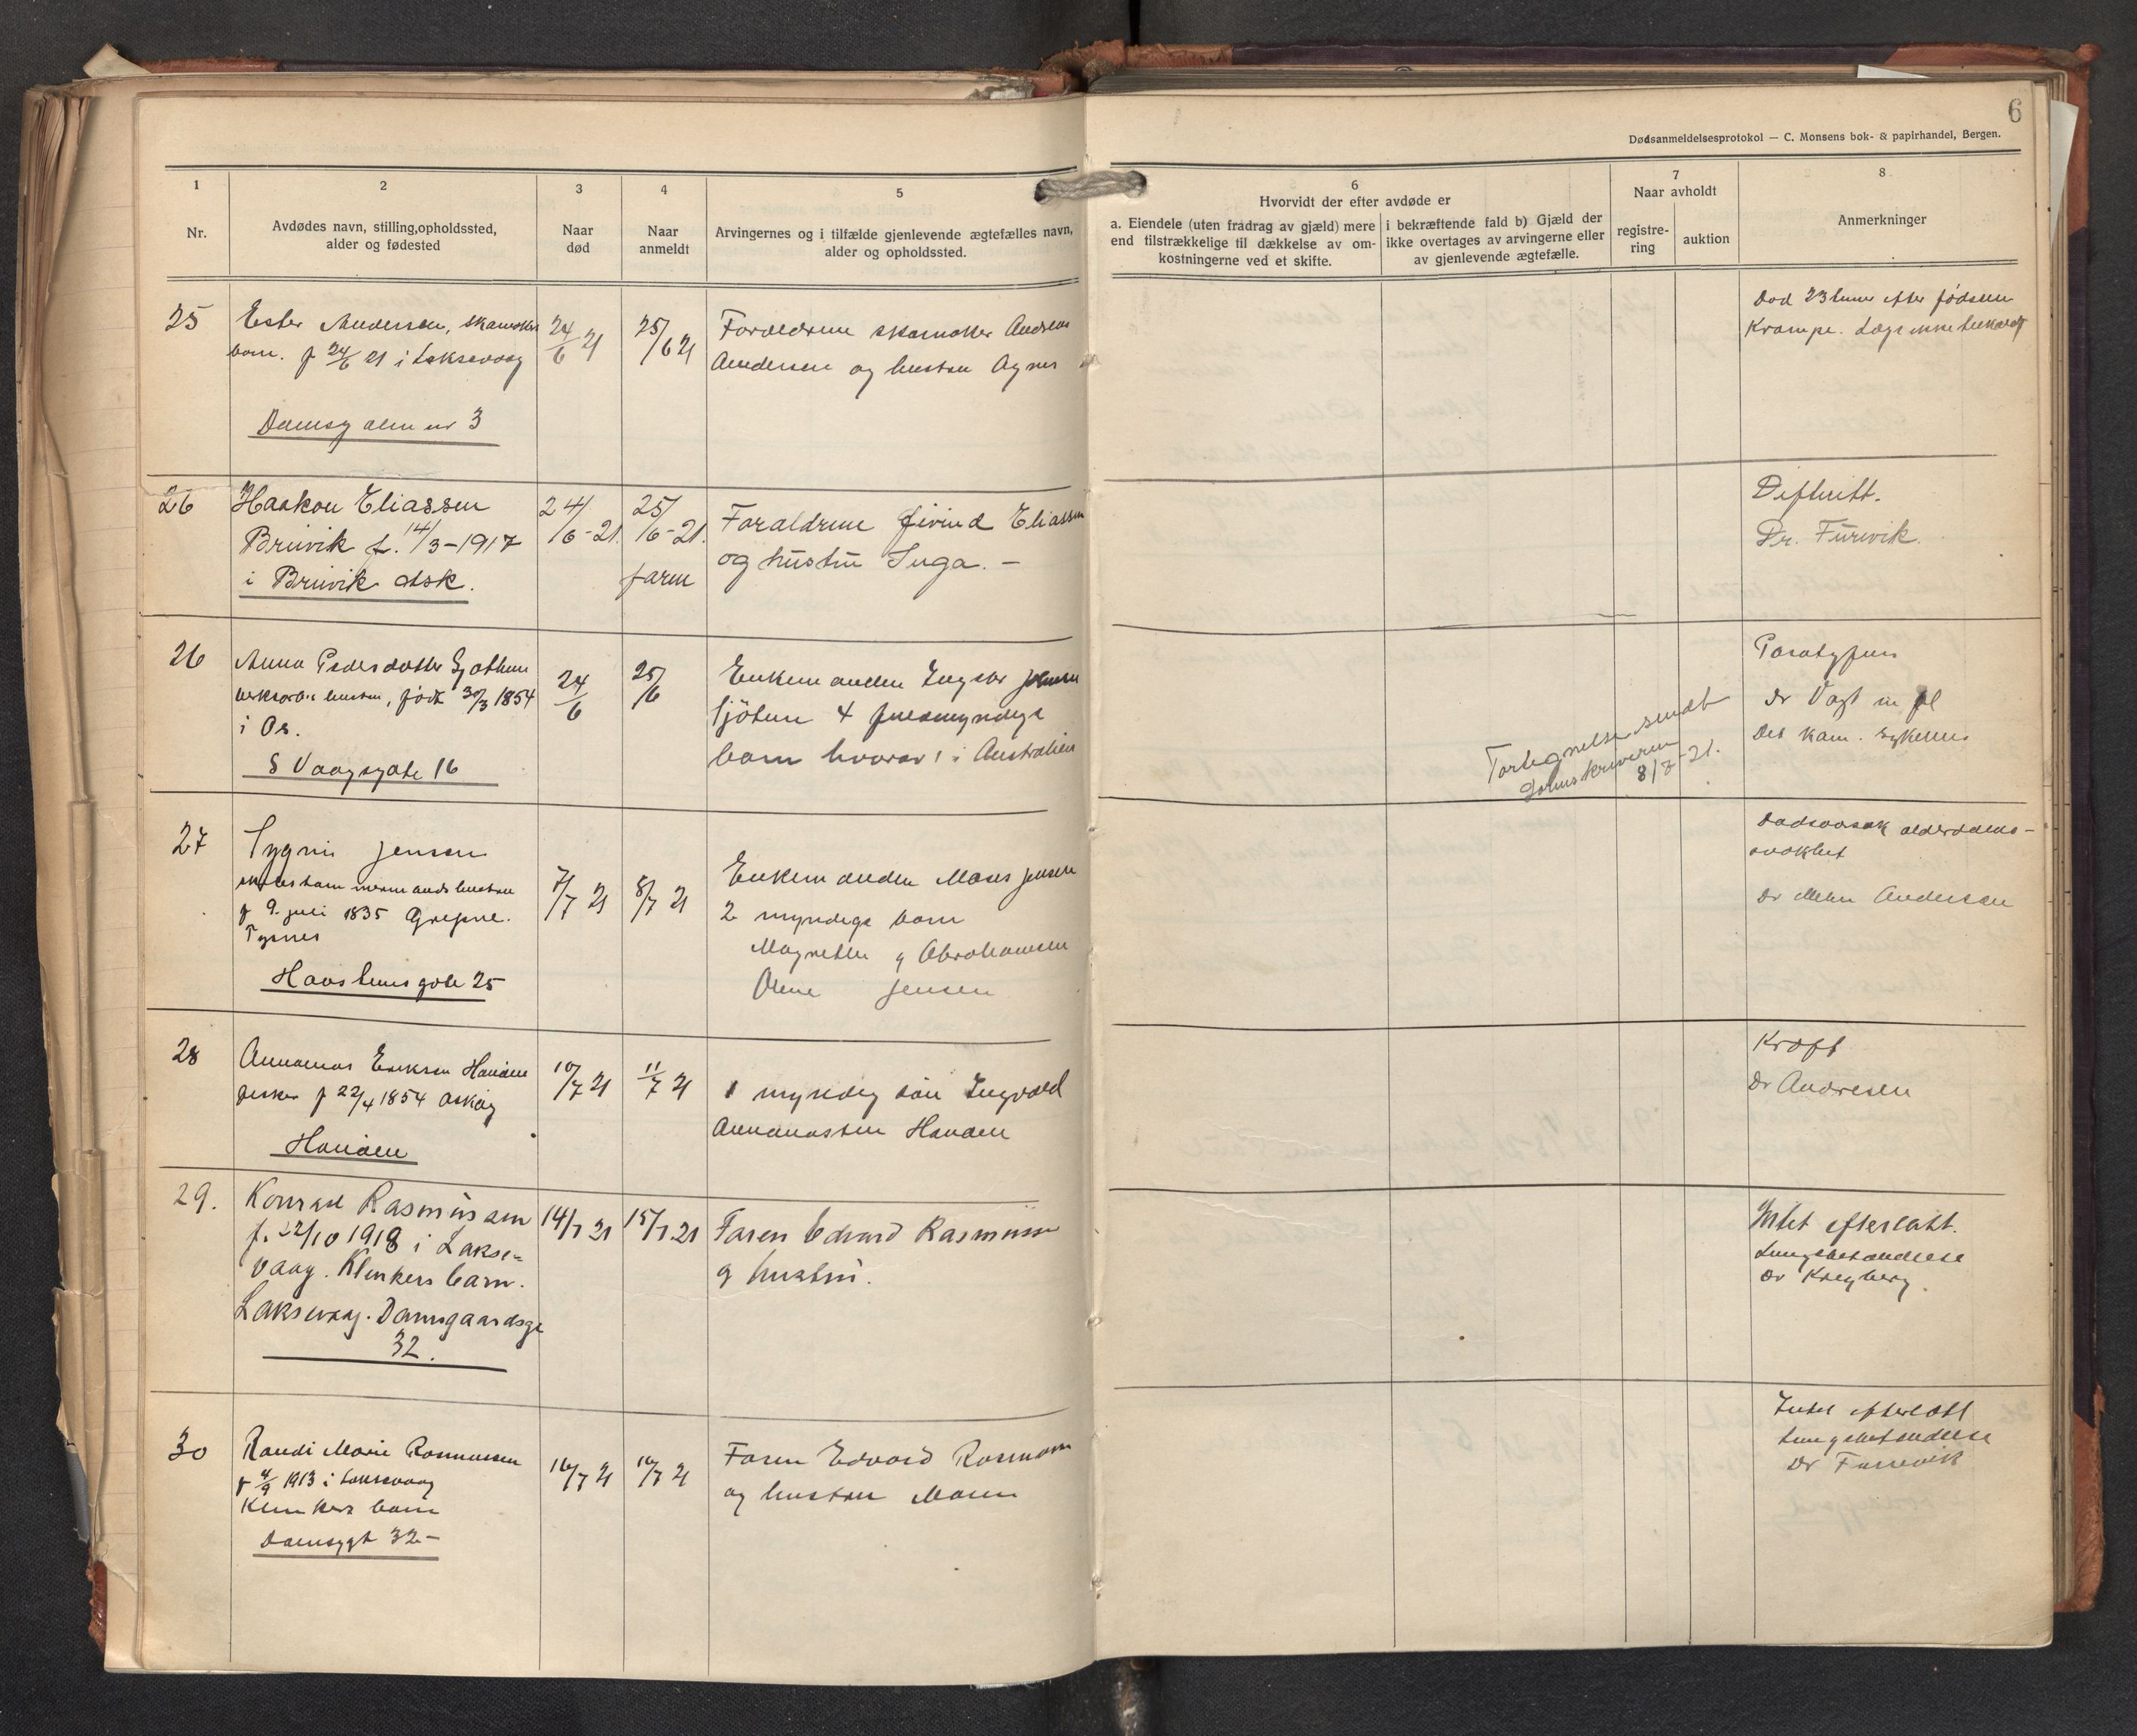 6
Dødsanmeldelsesprotokol — C. Monsens bok- & papirhandel, Bergen.
1
Nr.
2
Avdødes navn, stilling, opholdssted,
alder og fødested
3
Naar
død
4
Naar
anmeldt
5
Arvingernes og i tilfælde gjenlevende ægtefælles navn,
alder og opholdssted.
6
Hvorvidt der efter avdøde er
a. Eiendele (uten fradrag av gjæld) mere
end tilstrækkelige til dækkelse av om-
kostningerne ved et skifte.
i bekræftende fald b) Gjæld der
ikke overtages av arvingerne eller
av gjenlevende ægtefælle.
7
Naar avholdt
registre-
ring
auktion
8
Anmerkninger
25
Ester Andersen, skamoker
barn. f 24/6 21 i Laksevaag
Damsg alm nr 3
24/6 21
25/6 21
Foreldrene skomaker Andreas
Andersen og hustru Agnes
Død 23 timer efter fødselen
Krampe. Læge ikke
26
Haakon Eliassen
Bruvik f. 14/3-1917
i Bruvik
24/6-21.
25/6-21.
faren
Forældrene Eivind Eliassen
og hustru Inga. —
Difterit.
Dr. Furevik.
26
Anna Pedersdatter Gjøthun
hustru, født 30/3 1854
i Os.
S Vaagsgate 16
24/6
25/6
Enkemanden Ingebr Johnsen
4 fuldmyndige
barn hvorav 1 i Australien
Fortegnelse sendt
Sorenskriveren
8/7-21.
Paratyfus
Dr Vogt
Det kom. sykehus
27
Jensen
f 9. juli 1835
Tysnes
Haasteinsgate 25
7/7 21
8/7 21
Enkemanden Moses Jensen
2 myndige barn
Magnethe g Abrahamsen
Jensen
Dødsaarsak alderdoms-
svakhet
Dr Andersen
28
Annanias Eriksen Hanøen
fisker f 22/4 1854 Askøy
Hanøen
10/7 21
11/7 21
1 myndig søn Ingvald
Annaniassen Hanøen
Kræft
Dr Andresen
29.
Konrad Rasmussen
f. 22/10 1918 i Lakse-
vaag. Klinkers barn.
Laksevaag. Damsgaardsgt
32.
14/7 21
15/7 21
Faren Edvard Rasmussen
g hustru.
Intet efterlatt.
Lungebetændelse
Dr Kreyberg.
30
Randi Marie Rasmussen
1913 i Laksevaag
Klinkers barn
Damsggt 32 —
16/7 21
16/7 21
Faren Edvard Rasmussen
og hustru Maren
Intet efterlatt
Lungebetændelse
Dr Furevik